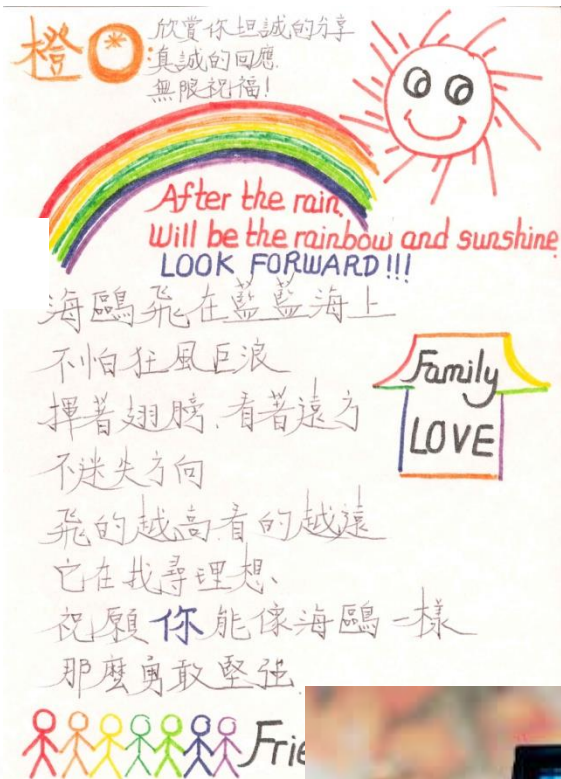 橙
欣賞你坦誠的分享
真誠的回應
無限祝福!
After the rain,
Will be the rainbow and sunshine
LOOK FORWARD!!!
海鷗飛在藍藍海上
不怕狂風巨浪
揮著翅膀.看著遠方
不迷失方向
飛的越高看的越遠
它在找尋理想、
祝願你能像海鷗一樣
那麼勇敢堅強
Family
LOVE
Frie